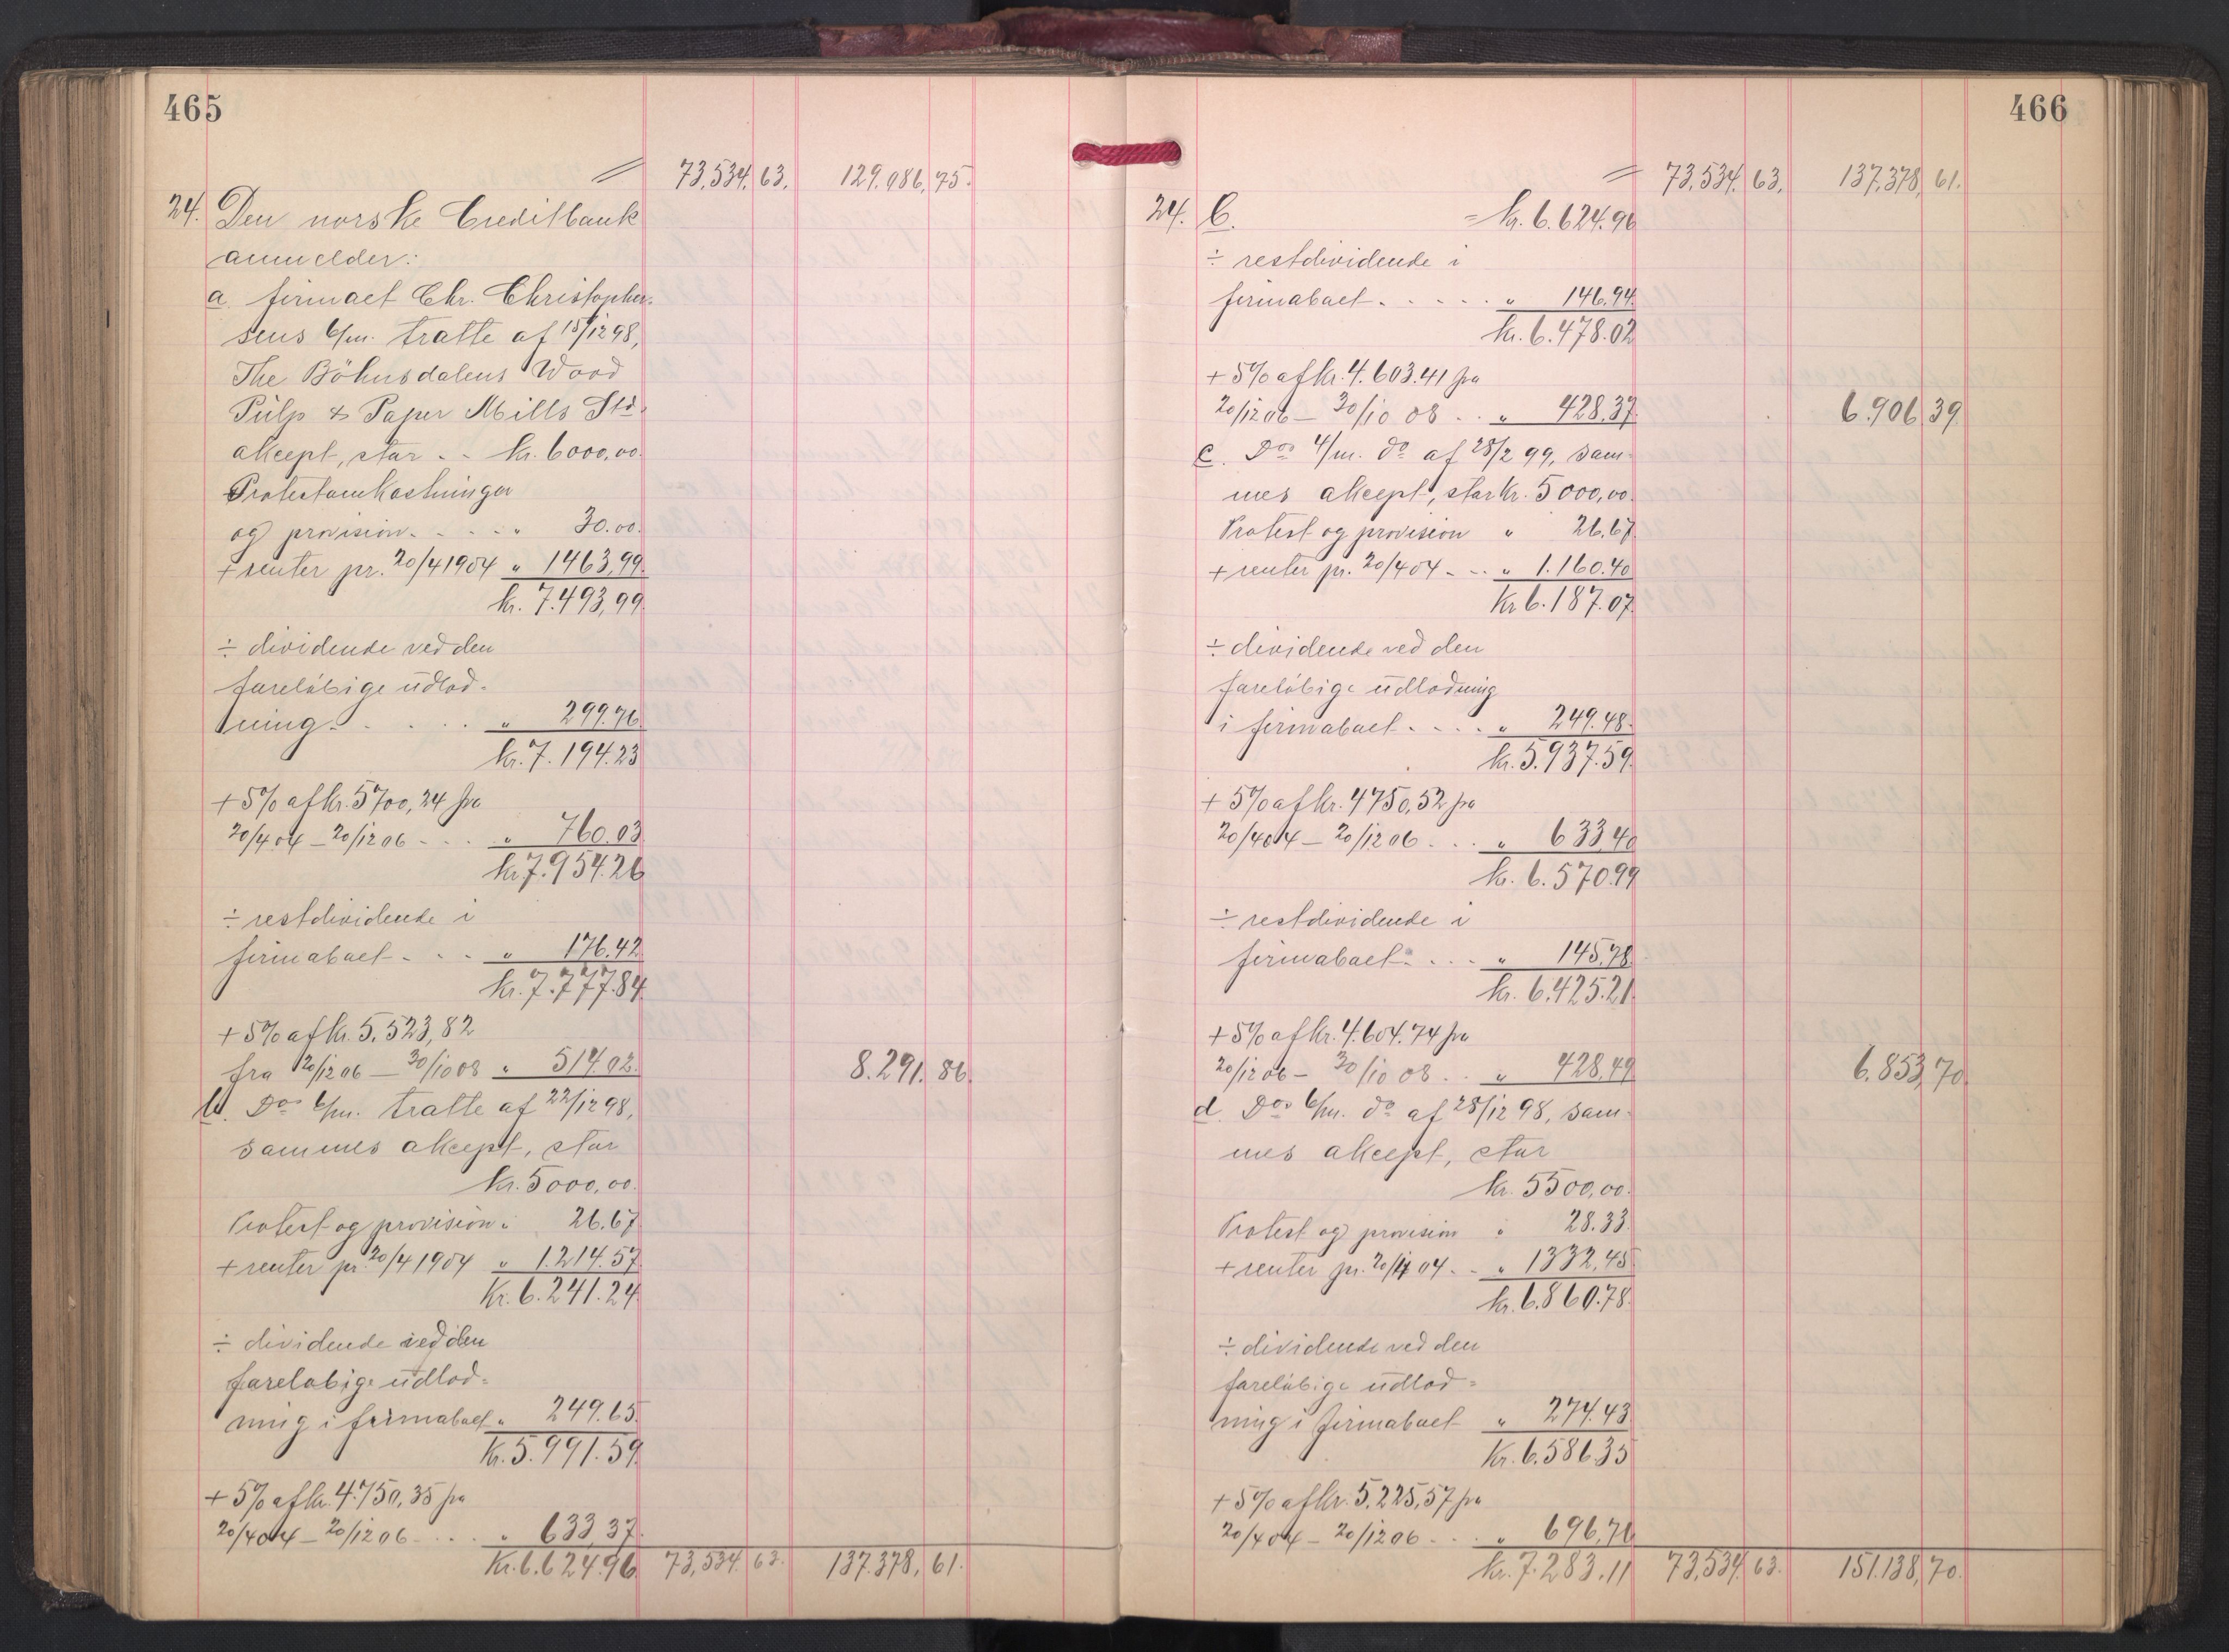 465
= 73,534. 63. 129.086, 75.
24. Den norske Creditbank
anmelder:
a. firmaet Chr. Christopher-
sens 6/m. tratte af 15/12 98,
The Böhnsdalens Wood
Pulp & Paper Mills Ltd.
akcept, stor . . kr. 6000,00.
Protestomkostninger
og provision. . . . " 30.00.
+ renter pr. 20/4 1904 " 1463,99.
kr. 7.493,99.
÷ dividende ved den
foreløbige udlod-
ning. . . . . " 299.76.
kr. 7.194.23
+ 5% af kr. 5700,24 fra
20/4 04 – 20/12 06 . . . . " 760.03
kr. 7.954.26
÷ restdividende i
firmaboet . . . " 176.42
kr. 7.777.84
+ 5% af kr. 5.523,82
fra 20/12 06 – 30/10 08 " 514.02. 8.291. 86.
b. Dos 6/m. tratte af 22/12 98,
sammes akcept, stor
kr. 5000,00.
Protest og provision " 26.67
+ renter pr. 20/4 1904 " 1.214.57
Kr. 6.241.24
÷ dividende ved den
foreløbige udlod-
ning i firmaboet " 249.65.
Kr. 5.991.59.
+ 5% af kr. 4.750,35 fra
20/4 04 – 20/12 06 . . . . " 633,37.
Kr. 6.624.96 73,534. 63. 137.378, 61.
466
= 73,534. 63. 137,378, 61.
24. b. = kr. 6.624.96
÷ restdividende i
firmaboet . . . . . " 146.94.
kr. 6.478.02
+ 5% af kr. 4.603.41 fra
20/12 06 – 30/10 08 . . " 428.37 6.906 39.
c. Dos 4/m. do af 28/2 99, sam-
mes akcept, stor kr. 5000,00.
Protest og provision " 26.67.
+ renter pr. 20/4 04 . . . " 1.160.40
Kr 6.187.07
÷ dividende ved den
foreløbige udlodning
i firmaboet . . . . " 249.48.
kr. 5.937.59.
+ 5% af kr. 4750,52 fra
20/4 04 – 20/12 06 . . . " 633.40
kr. 6.570.99
÷ restdividende i
firmaboet . . . . " 145.78
kr. 6.425.21.
+ 5% af kr. 4.604.74 fra
20/12 06 – 30/10 08 . . " 428,49 6.853, 70.
d. Dos 6/m. do af 28/12 98, sam-
mes akcept, stor
kr. 5500,00.
Protest og provision " 28.33.
+ renter pr. 20/4 04 . . " 1332,45
kr. 6.860.78.
÷ dividende ved den
foreløbige udlod-
ning i firmaboet " 274.43
Kr. 6.586.35
+ 5% af kr. 5.225,57 fra
20/4 04 – 20/12 06 . . . " 696,76
kr. 7.283.11 73,534. 63. 151.138, 70.